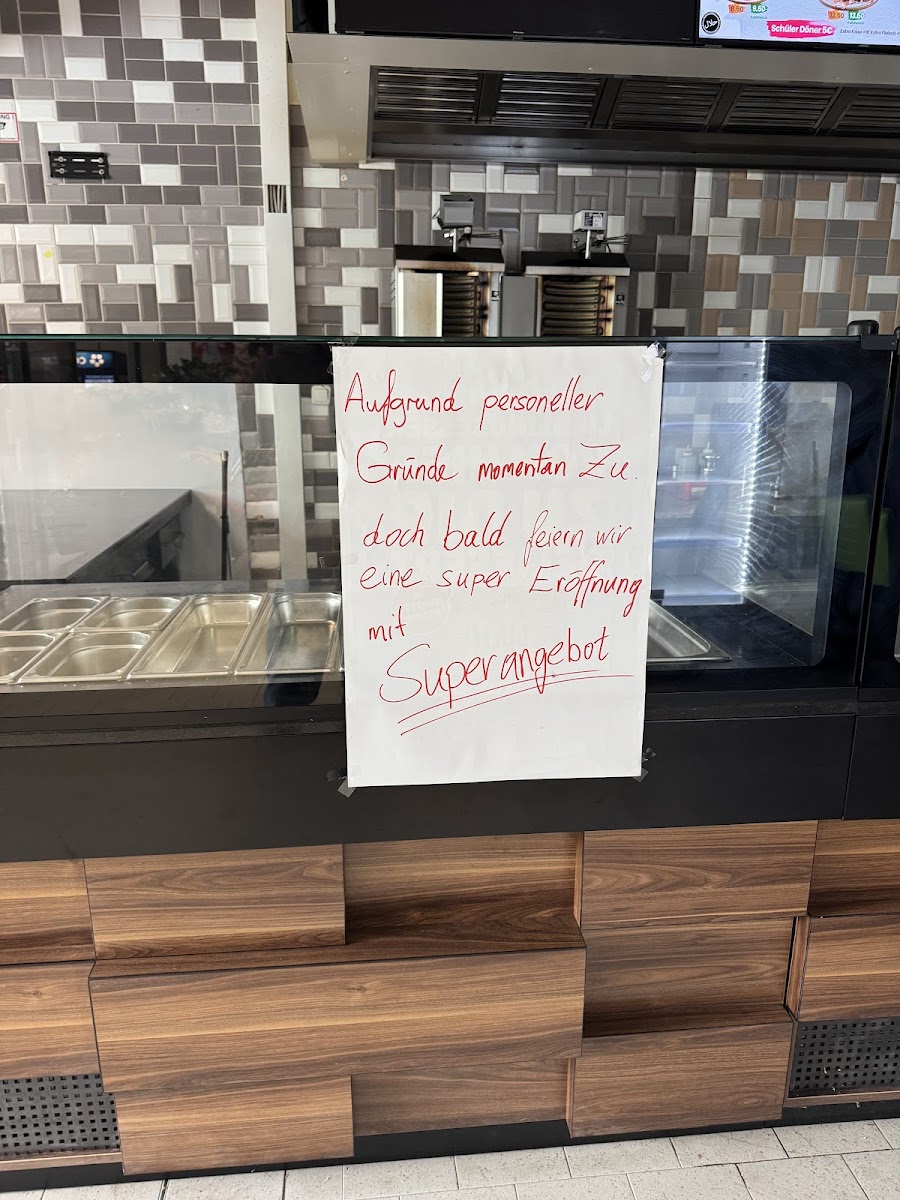 8.50 9.50
12.50 13.50
Schüler Döner 5€
Aufgrund personeller
Gründe momentan Zu.
doch bald feiern wir
eine super Eröffnung
mit
Superangebot